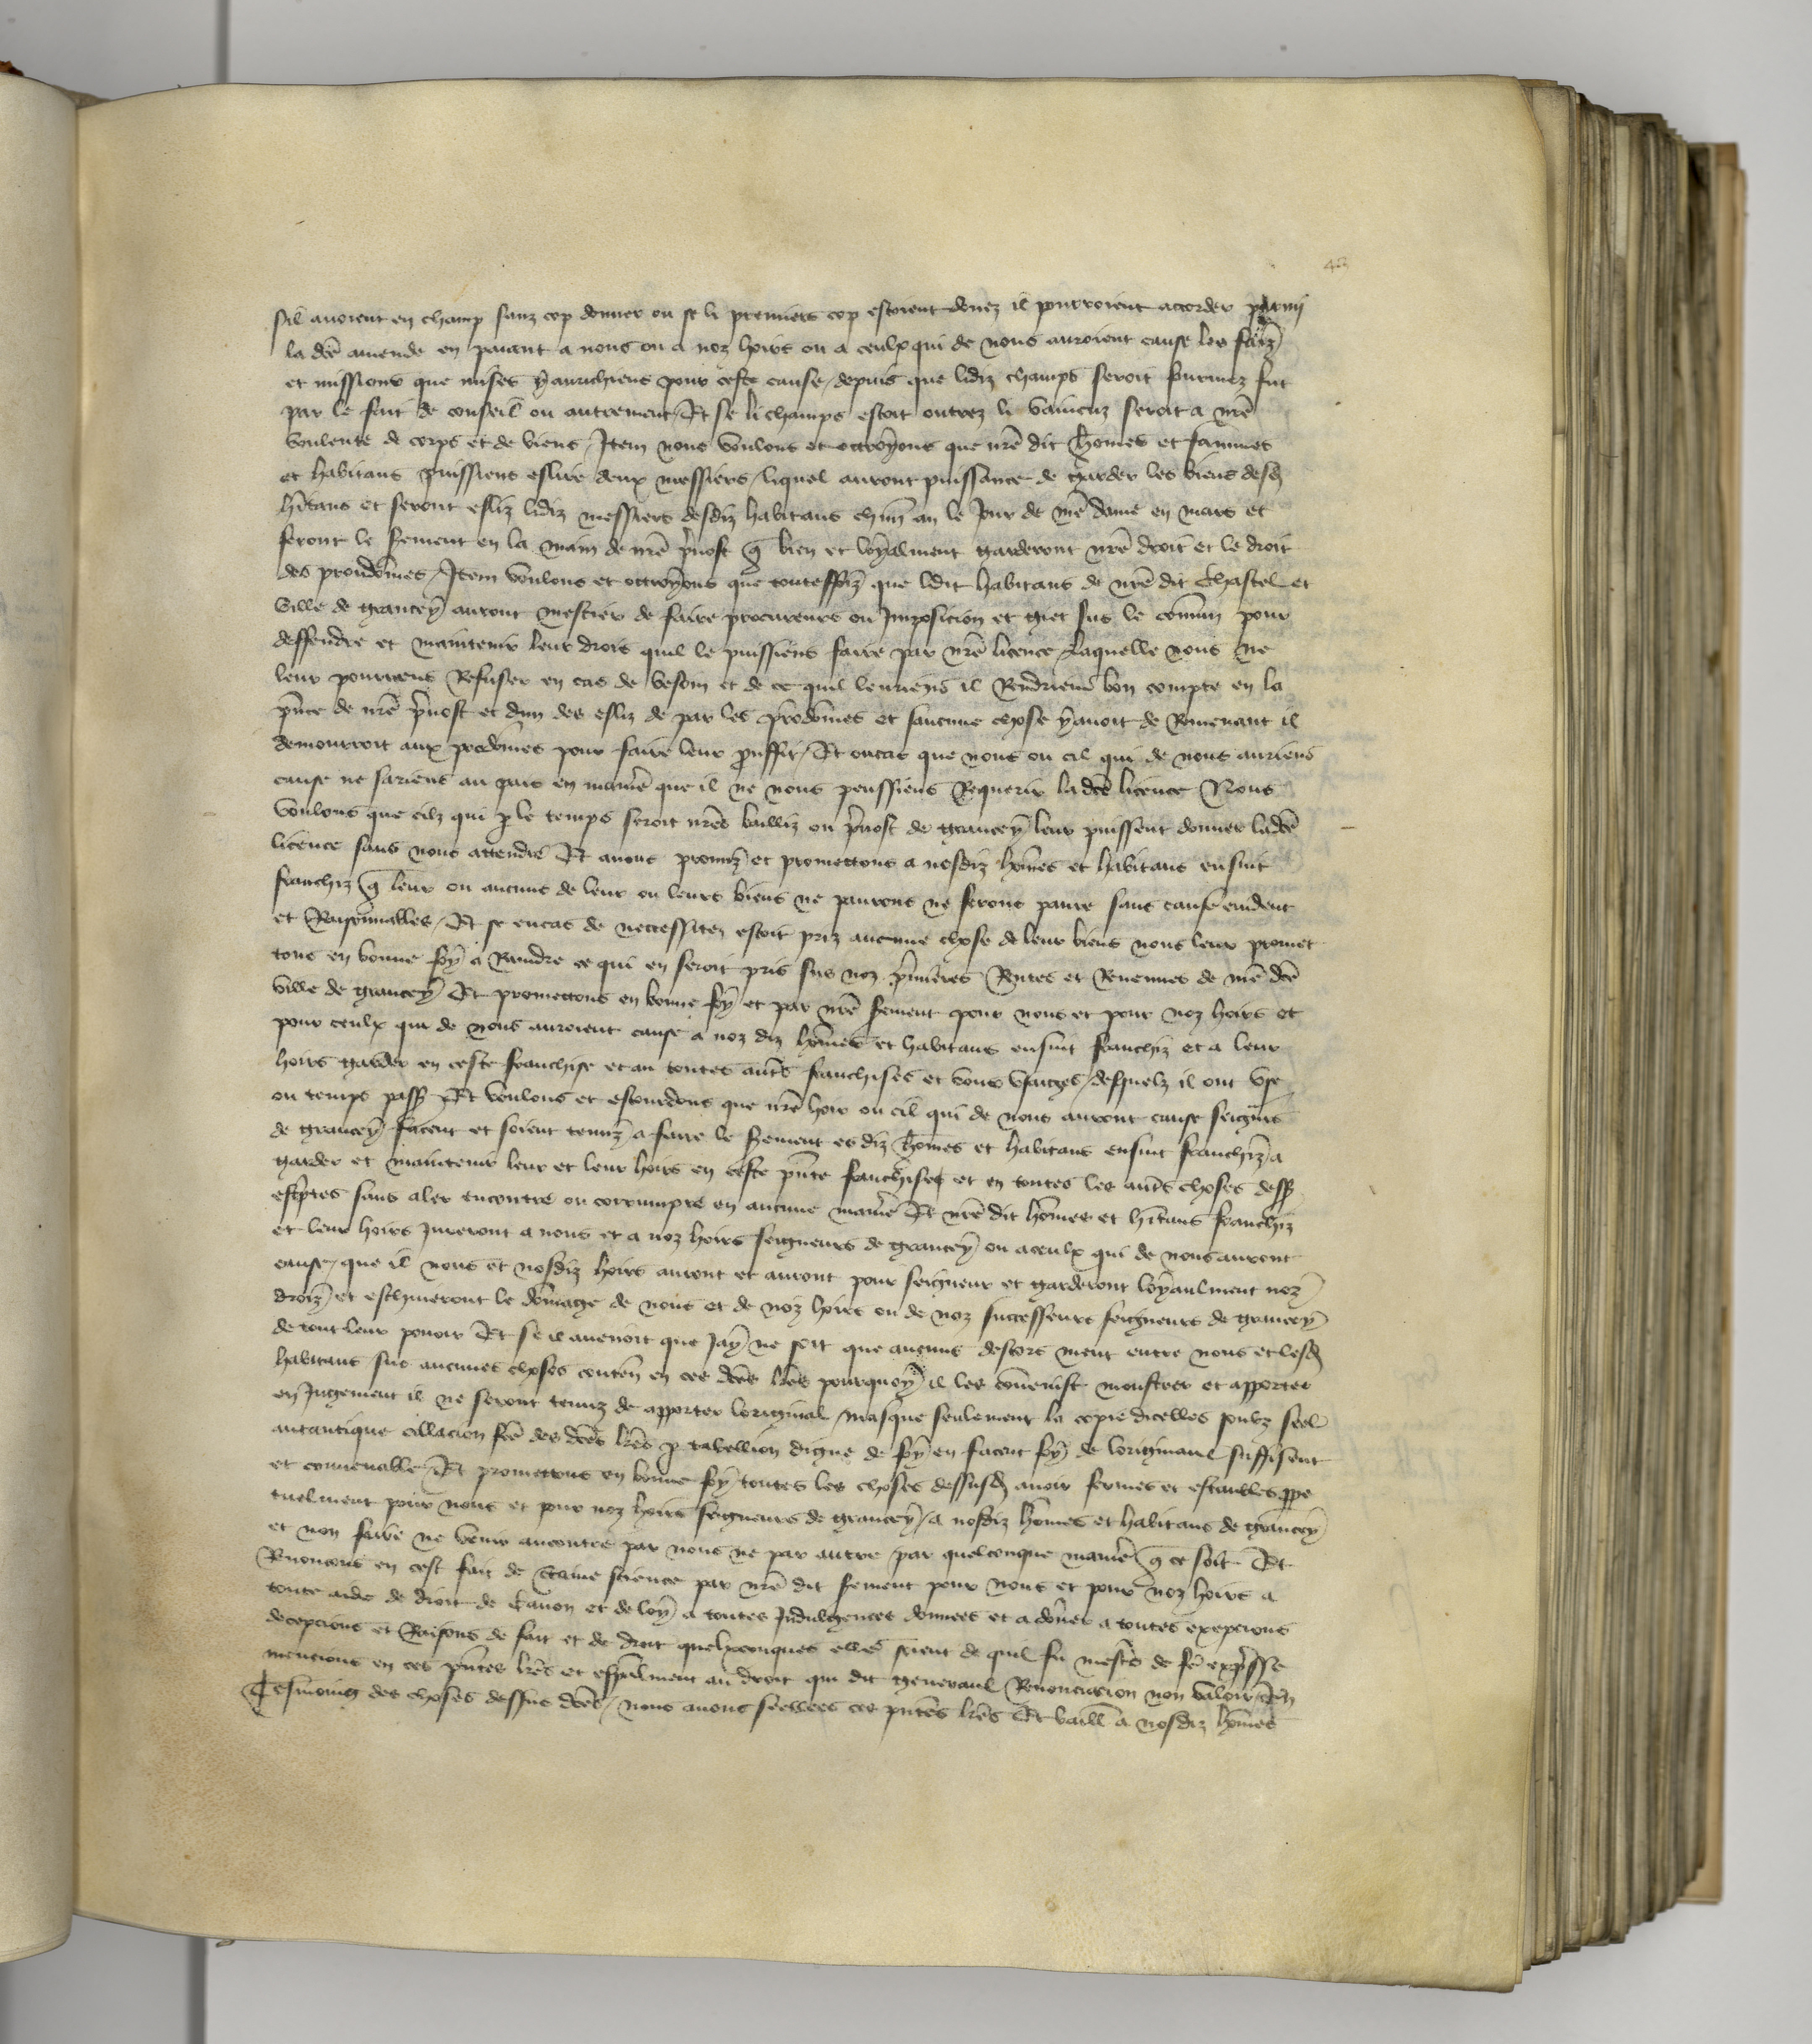 sil avoient en champ sanz cop donner ou se li premiers cop estoient donez il pourroient accorder parmi
la dce amende en paiant a nous ou a noz hoirs ou a ceulx qui de nous auroient cause les faiz
et missions que mises y auriens pour ceste cause / depuis que lidiz champs seroit fut
par le fait de conseil ou autrement / Et se li champs estoit outrez li vaincuz seroit a nre
voulente de corps et de biens / Item nous voulons et ottroyons que nre dit homes et fammes
et habitans puissiens eslire deux messiers / liquel auront puissance de garder les biens desd
hitans et seront esliz lidiz messiers desdiz habitans chun an le Jour de nre dame en mars et
feront le sement en la main de nre pvost q bien et loyalment garderont nre droit et le droit
des proudomes / Item voulons et ottroyons que toutesfoiz que ldit habitans de nre dit Chastel et
ville de grancey auront mestier de faire procureurs ou Imposicion et giet sus le comun pour
deffendre et maintenir leur drois quil le puissiens faire par nre licence / laquelle nous ne
leur pourriens Refuser en cas de besoin et de ce quil leuriens il Rendriens bon compte en la
pnce de nre pvost et dun des esliz de par les prodomes et saucune chose y avoit de Remenant il
demourroit aux prodomes pour faire leur prouffit / Et oucas que nous ou cil qui de nous auriens
cause ne sariens au pais en maniere que il ne nous peussiens Requerir ladce licence Nous
voulons que cilz qui p le temps seroit nres bailliz ou pvost de grancey leur puissent donner ladce
licence sans nous attendre Et avons promiz et promettons a nosdiz homes et habitans ensuit
franchiz q leur ou aucuns de leur ou leurs biens ne panrons ne ferons panre sans cause evident
et Raisonnalles / Et se encas de neccessitez estoit priz aucune chose de leur biens nous leur promet
tons en bonne foy a Rendre ce qui en seroit pris sus noz pmieres Rentes et Revenues de nre dce
ville de grancey Et promettons en bonne foy et par nre sement pour nous et pour noz hoirs et
pour ceulx qui de nous auroient cause a noz diz homes et habitans ensuit franchiz et a leur
hoirs garder en ceste franchise et an toutes autres franchises et bons usaiges / desquelz il ont use
ou temps passe Et voulons et que nre hoir ou cil qui de nous auront cause seigneurs
de grancey facent et soient tenuz a faire le sement es diz homes et habitans ensuit franchiz a
garder et maintenir leur et leur hoirs en ceste pnte franchises et en toutes les autres choses dess
escriptes sans aler encontre ou corrumpre en aucune maniere Et nre dit homes et hitans franchiz
et leur hoirs Jureront a nous et a noz hoirs seigneurs de grancey ou a ceulx qui de nous auront
cause / que il nous et nosdiz hoirs auront et auront pour seigneur et garderont loyaulment noz
droiz et eschiueront le domage de nous et de noz hoirs ou de noz successeurs seigneurs de grancey
de tout leur povoir Et se il avenoit que Jay ne soit que aucuns descors meut entre nous et lesd
habitans sus aucunes choses conten en ces dces lres pourquoy il les covenist monstrer et apporter
en Jugement il ne seront tenuz de apporter loriginal / masque seulement la copie dicelles soubz seel
autantique collacion fce des dces lres p tabellion digne de foy en facent foy de loriginaul suffisent
et convenable / Et promettons en bonne foy toutes les choses dessusd avoir fermes et estaubles ppe
tuelment pour nous et pour noz hoirs seigneurs de grancey / a nosdiz homes et habitans de grancey
et non faire ne venir ancontre par nous ne par autre par quelconque maniere q ce soit Et
Renoncons en cest fait de Certaine science par nre dit sement pour nous et pour noz hoirs a
toute aide de droit de Canon et de loy a toutes Indulgences donnees et a doner a toutes exepcions
decepcions et Raisons de fait et de droit quelxconques elles soient de quil fu mestier de fe expresse
mencions en ces pntes lres et espalment au droit qui dit general Renonciacion non valoir / En
Tesmoing des choses dessus dces / nous avons seellees ces pntes lres Et baill a nosdiz homes